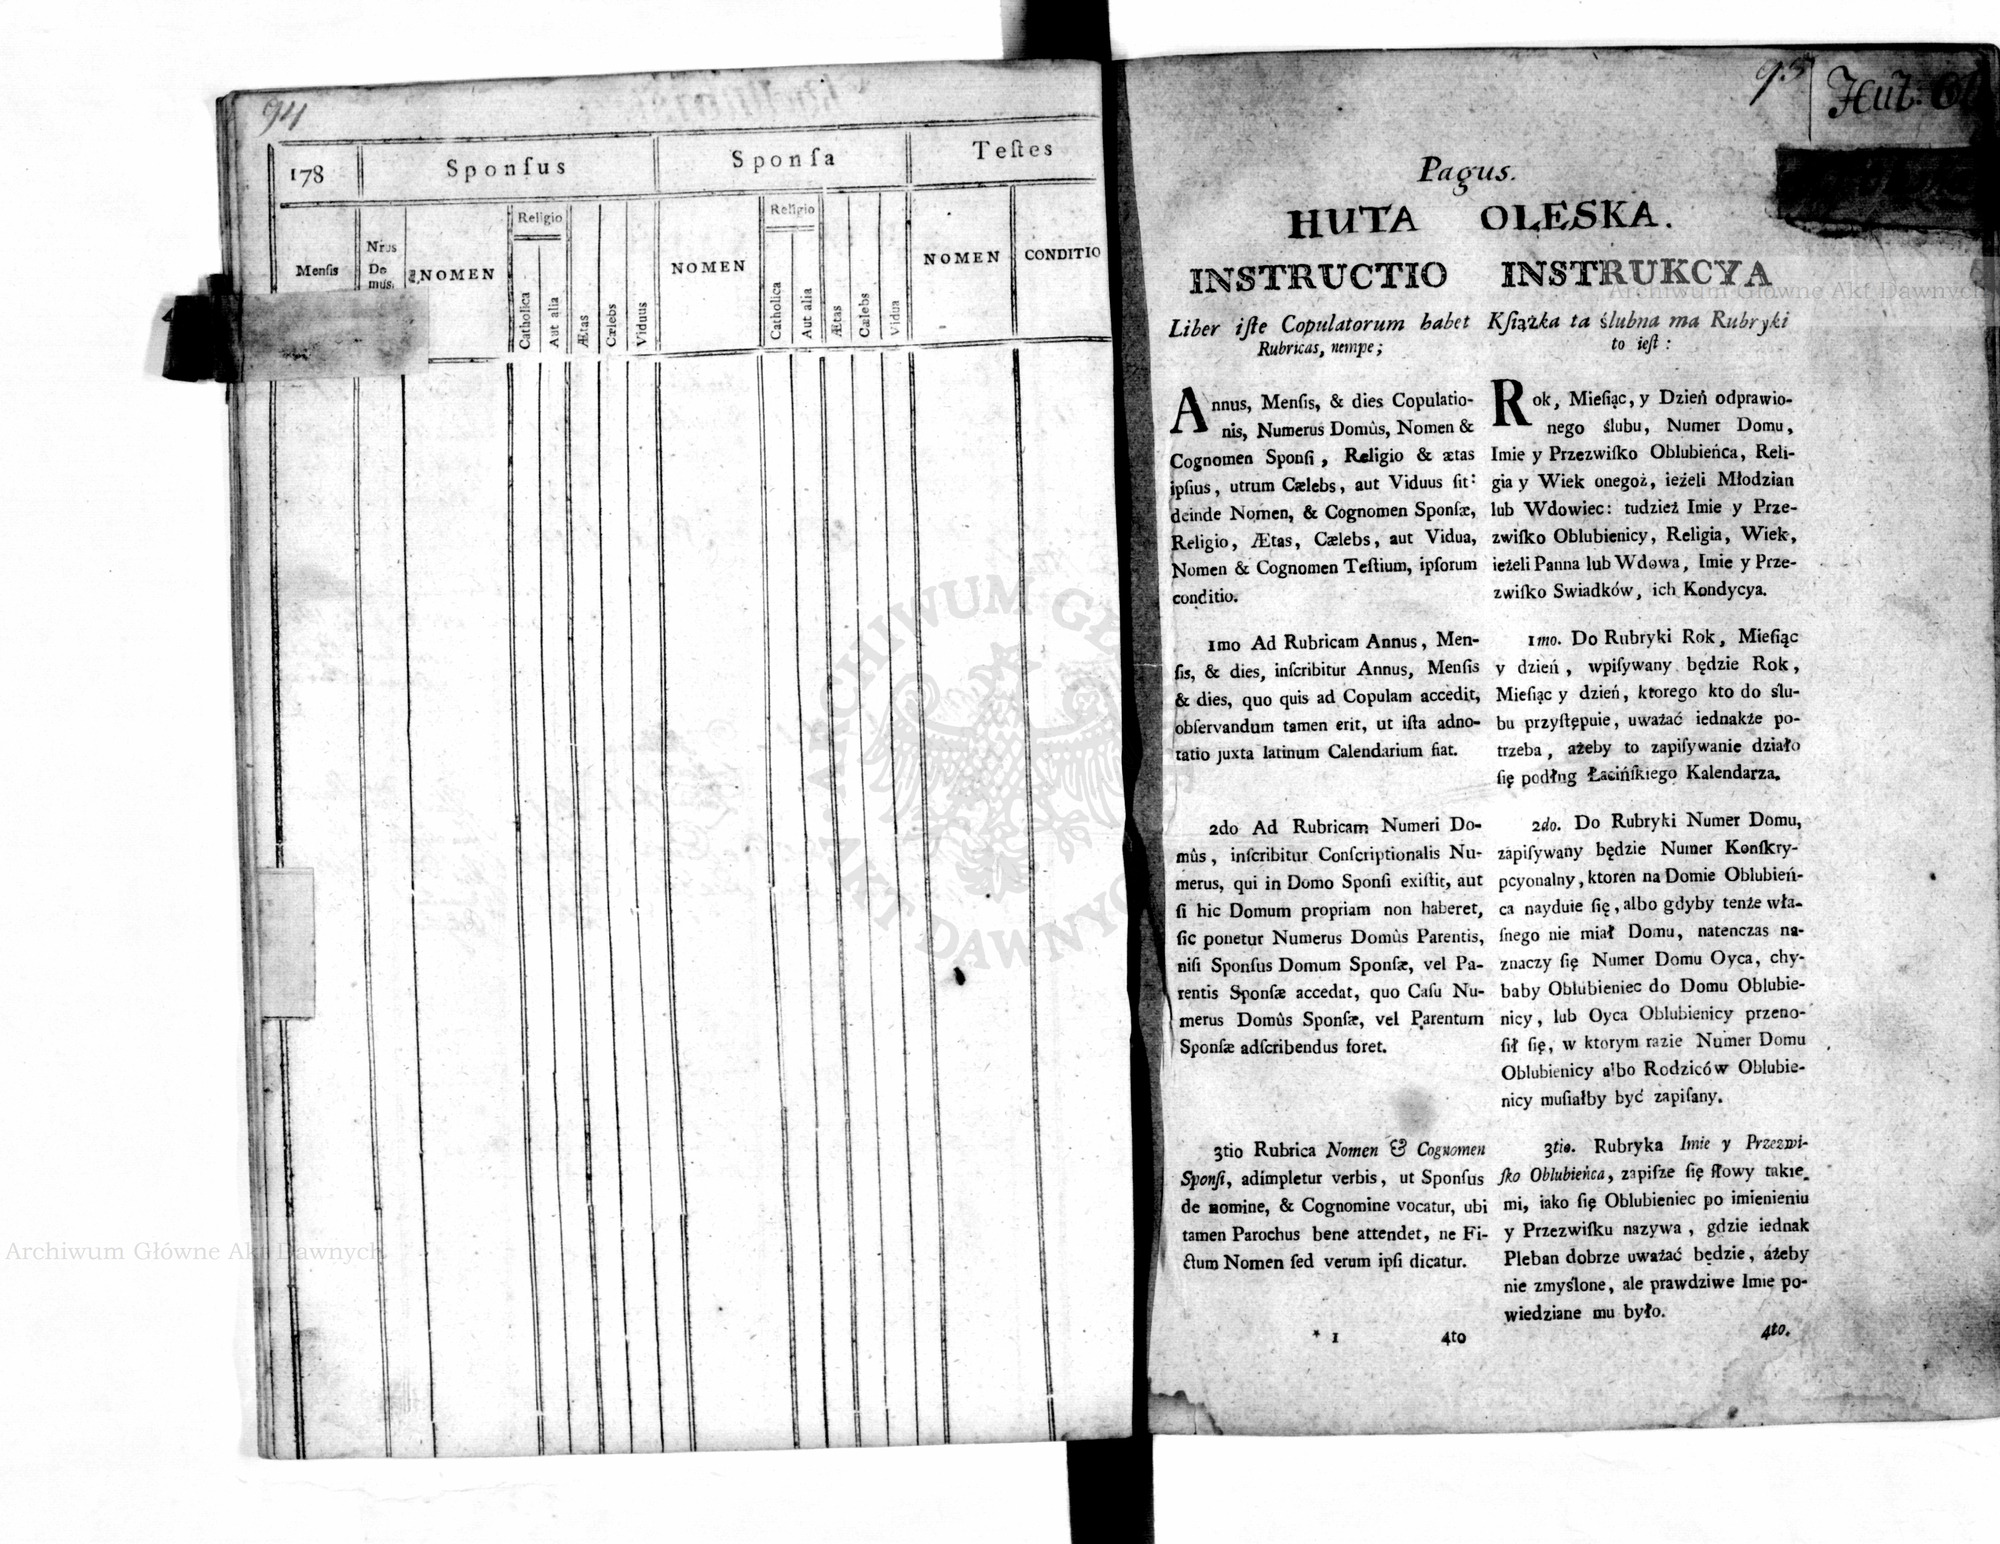 94
178
Sponſus
Sponſa
Teſtes
Menſis
Nrus Do mus.
NOMEN
Religio
Catholica
Aut alia
Ætas
Cælebs
Viduus
NOMEN
Religio
Catholica
Aut alia
Ætas
Cælebs
Vidua
NOMEN
CONDITIO
95
Hut:
Pagus.
HUTA OLESKA.
INSTRUCTIO
Liber iſte Copulatorum habet
Rubricas, nempe;
Annus, Menſis, & dies Copulatio-
nis, Numerus Domûs, Nomen &
Cognomen Sponſi, Religio & ætas
ipſius, utrum Cælebs, aut Viduus ſit:
deinde Nomen, & Cognomen Sponſæ,
Religio, Ætas, Cælebs, aut Vidua,
Nomen & Cognomen Teſtium, ipſorum
conditio.
1mo Ad Rubricam Annus, Men-
ſis, & dies, inſcribitur Annus, Menſis
& dies, quo quis ad Copulam accedit,
obſervandum tamen erit, ut iſta adno-
tatio juxta latinum Calendarium fiat.
2do Ad Rubricam Numeri Do-
mûs, inſcribitur Conſcriptionalis Nu-
merus, qui in Domo Sponſi exiſtit, aut
ſi hic Domum propriam non haberet,
ſic ponetur Numerus Domûs Parentis,
niſi Sponſus Domum Sponſæ, vel Pa-
rentis Sponſæ accedat, quo Caſu Nu-
merus Domûs Sponſæ, vel Parentum
Sponſæ adſcribendus foret.
3tio Rubrica Nomen & Cognomen
Sponſi, adimpletur verbis, ut Sponſus
de nomine, & Cognomine vocatur, ubi
tamen Parochus bene attendet, ne Fi-
ctum Nomen ſed verum ipſi dicatur.
* 1 4to
INSTRUKCYA
Kſiążka ta ślubna ma Rubryki
to ieſt:
Rok, Mieſiąc, y Dzień odprawio-
nego ślubu, Numer Domu,
Imie y Przezwiſko Oblubieńca, Reli-
gia y Wiek onegoż, ieżeli Młodzian
lub Wdowiec: tudzież Imie y Prze-
zwiſko Oblubienicy, Religia, Wiek,
ieżeli Panna lub Wdowa, Imie y Prze-
zwiſko Swiadków, ich Kondycya.
1mo. Do Rubryki Rok, Mieſiąc
y dzień, wpiſywany będzie Rok,
Mieſiąc y dzień, ktorego kto do ślu-
bu przyſtępuie, uważać iednakże po-
trzeba, ażeby to zapiſywanie działo
ſię podług Łacińſkiego Kalendarza.
2do. Do Rubryki Numer Domu,
zapiſywany będzie Numer Konſkry-
pcyonalny, ktoren na Domie Oblubień-
ca nayduie ſię, albo gdyby tenże wła-
ſnego nie miał Domu, natenczas na-
znaczy ſię Numer Domu Oyca, chy-
baby Oblubieniec do Domu Oblubie-
nicy, lub Oyca Oblubienicy przeno-
ſił ſię, w ktorym razie Numer Domu
Oblubienicy albo Rodziców Oblubie-
nicy muſiałby być zapiſany.
3tio. Rubryka Imie y Przezwi-
ſko Oblubieńca, zapiſze ſię ſłowy takie-
mi, iako ſię Oblubieniec po imienieniu
y Przezwiſku nazywa, gdzie iednak
Pleban dobrze uważać będzie, ażeby
nie zmyślone, ale prawdziwe Imie po-
wiedziane mu było.
4to.
Archiwum Główne Akt Dawnych
Archiwum Główne Akt Dawnych